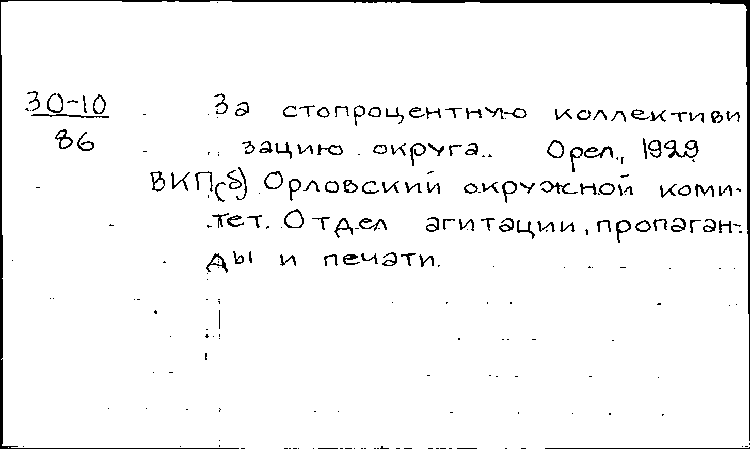 30-10 За стопроцентную коллективи
86 зацию округа.. Орел., 1929
ВКП(б) Орловский окружной коми-
тет. Отдел агитации, пропаган-
ды и печати.